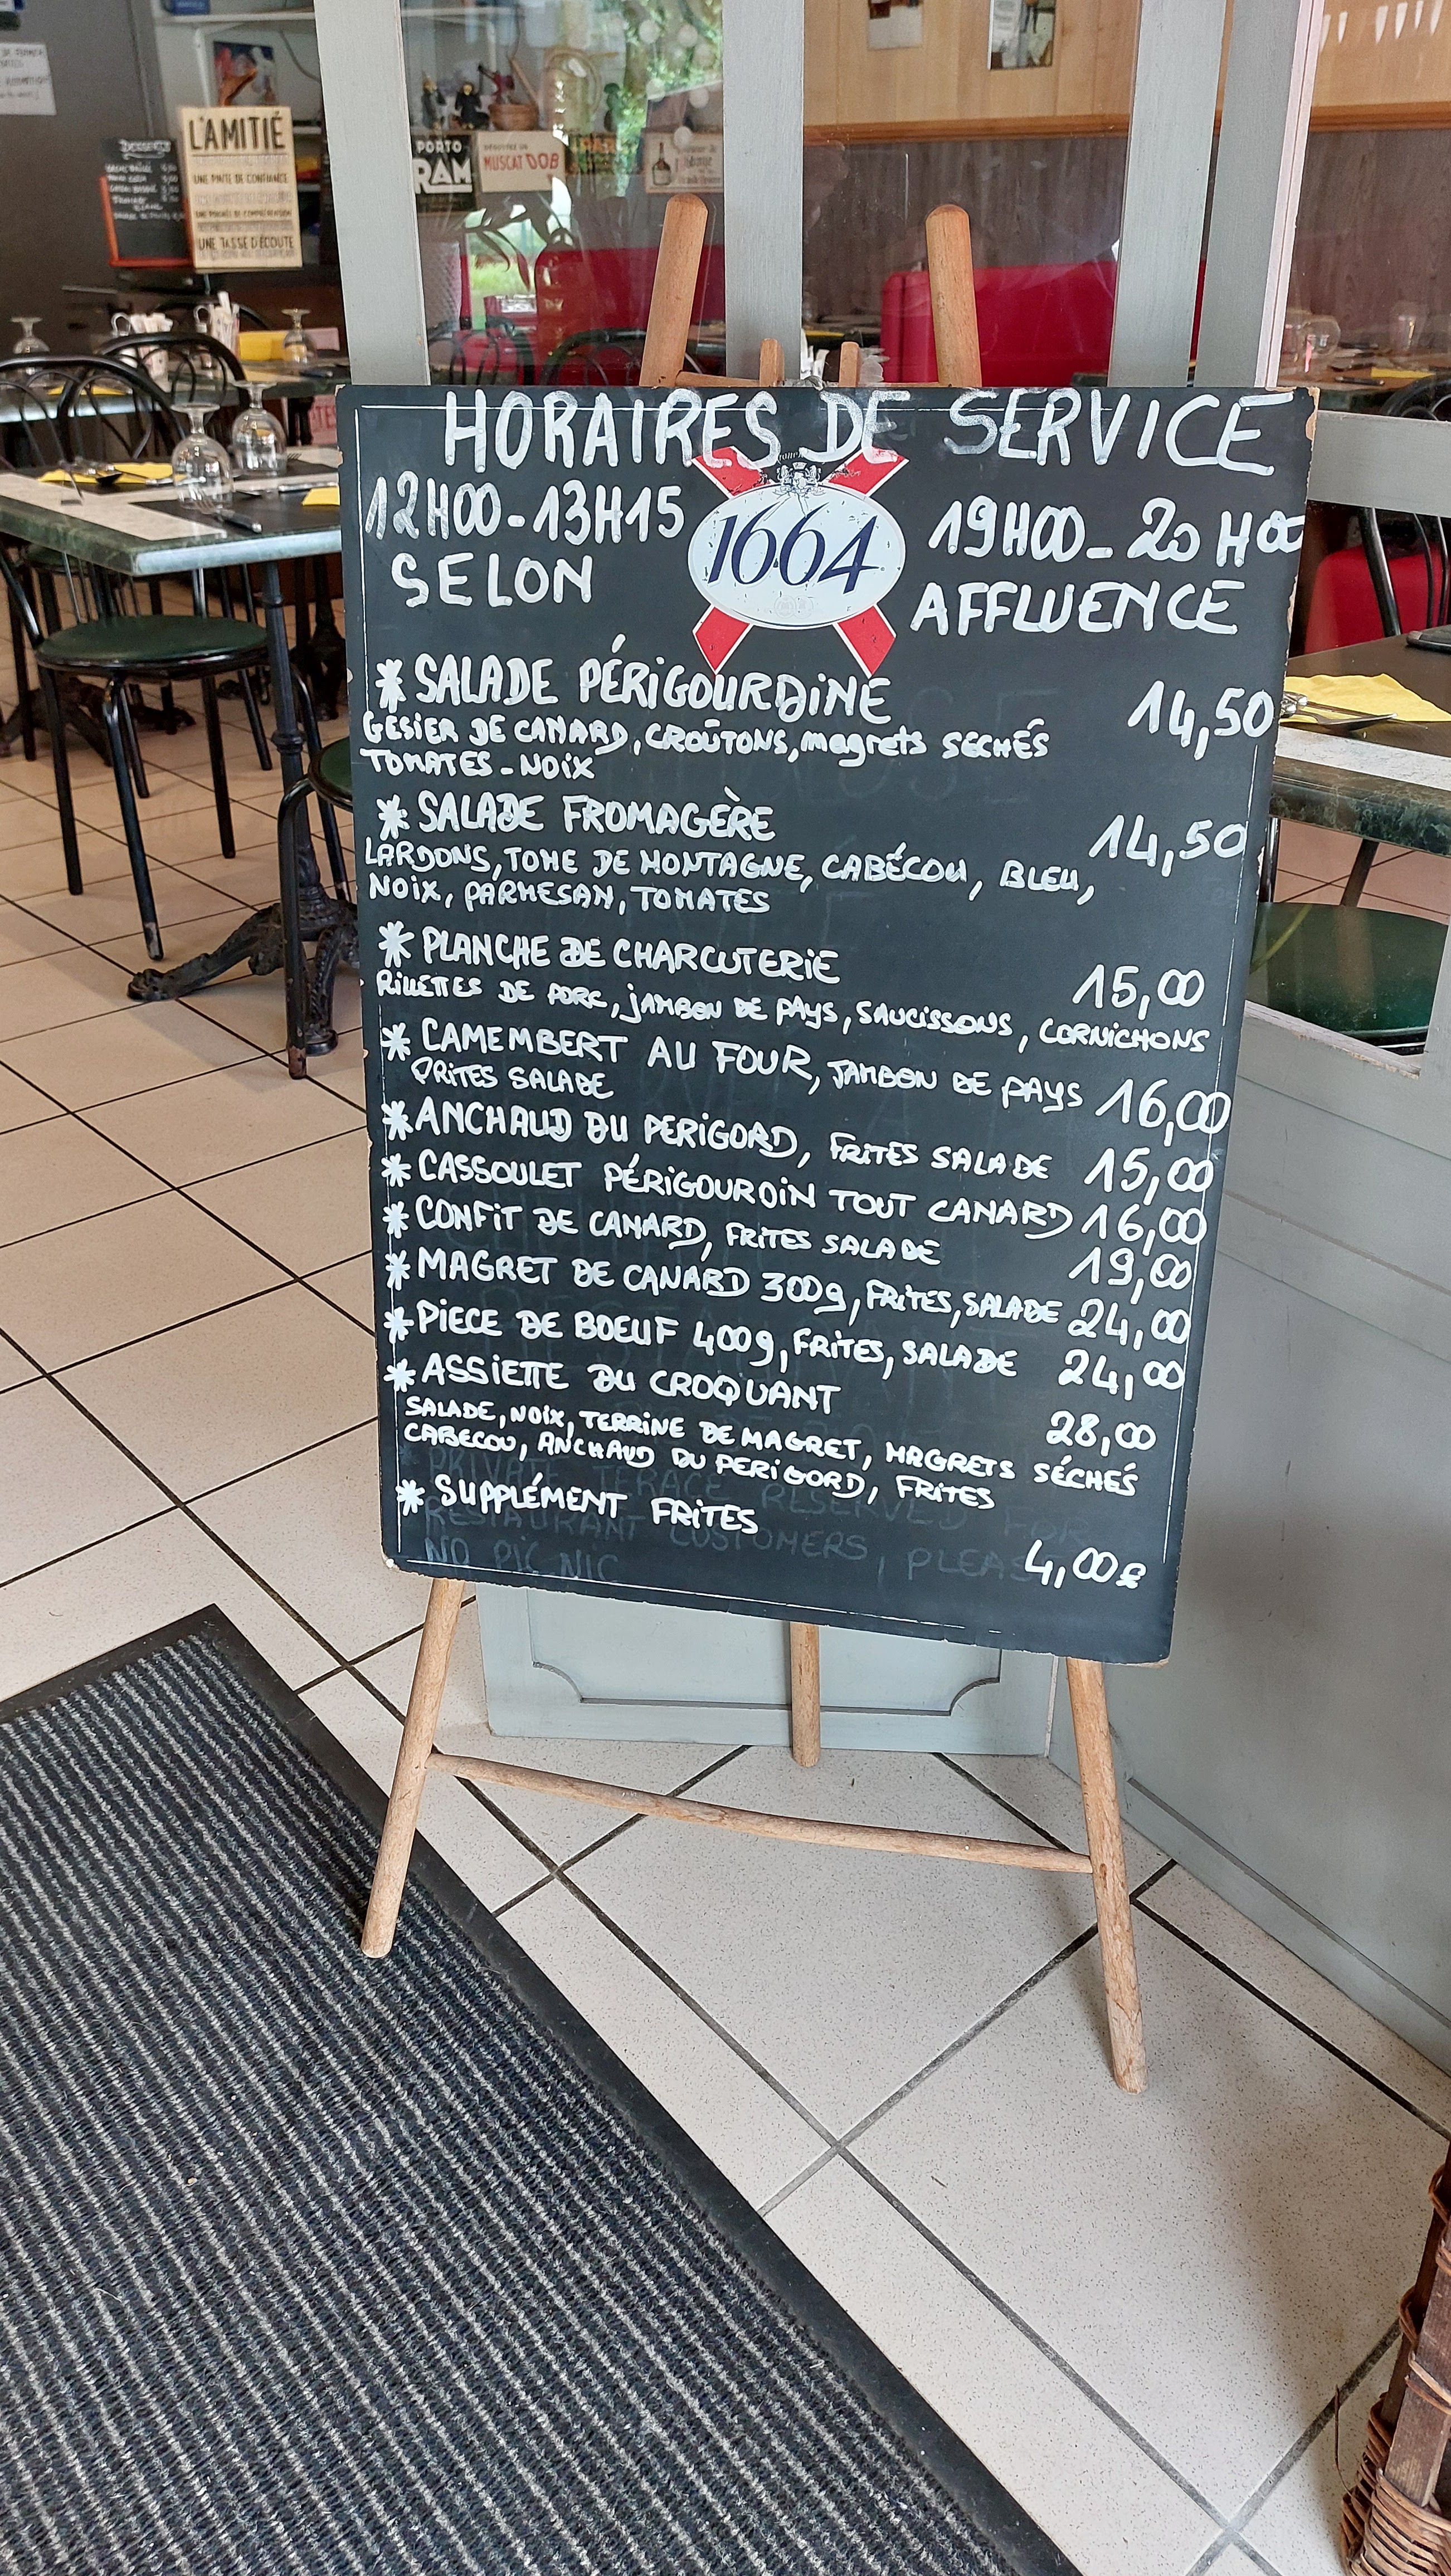 L'AMITIÉ
UNE PINTE DE CONFIANCE
UNE POIGNÉE DE COMPRÉHENSION
UNE TASSE D'ÉCOUTE
DESSERTS
PORTO
RAM
MUSCAT DOB
HORAIRES DE SERVICE
12H00-13H15 1664 19H00-20H00
SELON AFFLUENCE
* SALADE PÉRIGOURDINE 14,50
GESIER DE CANARD, CROÛTONS, magrets SECHÉS
TOMATES-NOIX
* SALADE FROMAGÈRE 14,50
LARDONS, TOME DE MONTAGNE, CABÉCOU, BLEU,
NOIX, PARMESAN, TOMATES
* PLANCHE DE CHARCUTERIE 15,00
RILLETTES DE PORC, JAMBON DE PAYS, SAUCISSONS, CORNICHONS
* CAMEMBERT AU FOUR, JAMBON DE PAYS 16,00
FRITES SALADE
* ANCHAUD DU PERIGORD, FRITES SALADE 15,00
* CASSOULET PÉRIGOURDIN TOUT CANARD 16,00
* CONFIT DE CANARD, FRITES SALADE 19,00
* MAGRET DE CANARD 300g, FRITES, SALADE 24,00
* PIECE DE BOEUF 400g, FRITES, SALADE 24,00
* ASSIETTE DU CROQUANT 28,00
SALADE, NOIX, TERRINE DE MAGRET, MAGRETS SÉCHÉS
CABECOU, ANCHAUD DU PERIGORD, FRITES
* SUPPLÉMENT FRITES 4,00€
PRIVATE TERACE RESERVED FOR
RESTAURANT CUSTOMERS, PLEAS
NO PIC NIC